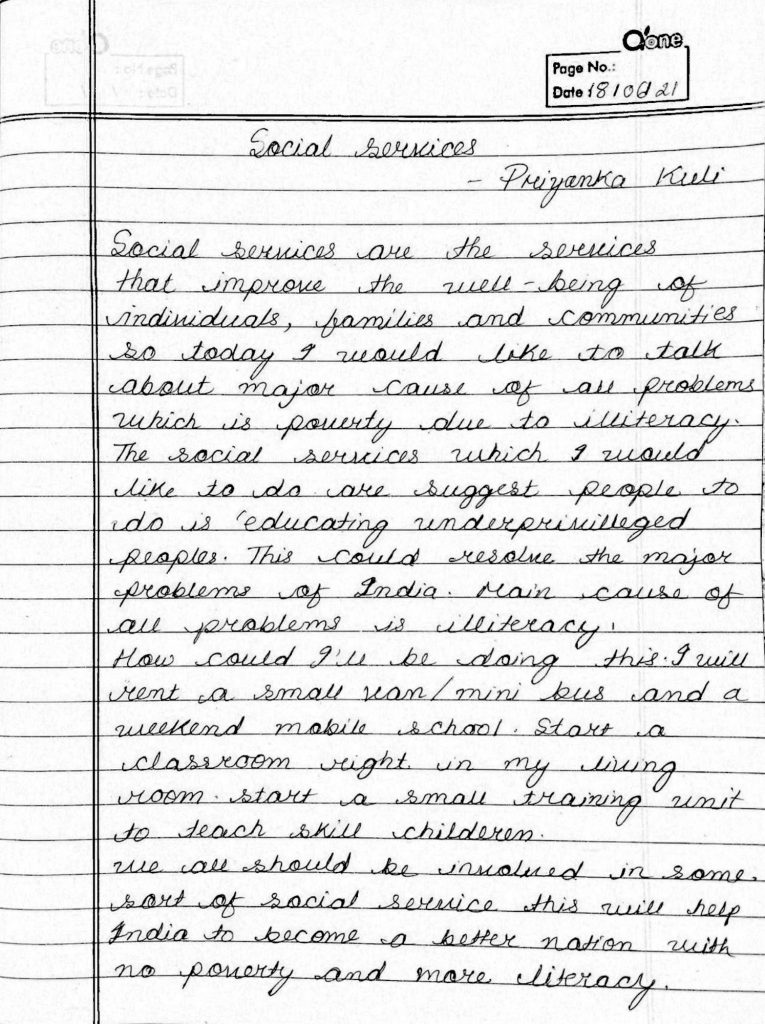 a'one
Page No.:
Date 18/06/21
Social services
- Priyanka Kuli
Social services are the services
that improve the well-being of
individuals, families and communities
so today I would like to talk
about major cause of all problems
which is poverty due to illiteracy.
The social services which I would
like to do are suggest people to
do is 'educating underprivilleged
peoples. This could resolve the major
problems of India. Main cause of
all problems is illiteracy.
How could I'll be doing this. I will
rent a small van/mini bus and a
weekend mobile school. Start a
classroom right. in my living
room. start a small training unit
to teach skill childeren.
we all should be involved in some.
sort of social service this will help
India to become a better nation with
no poverty and more literacy.